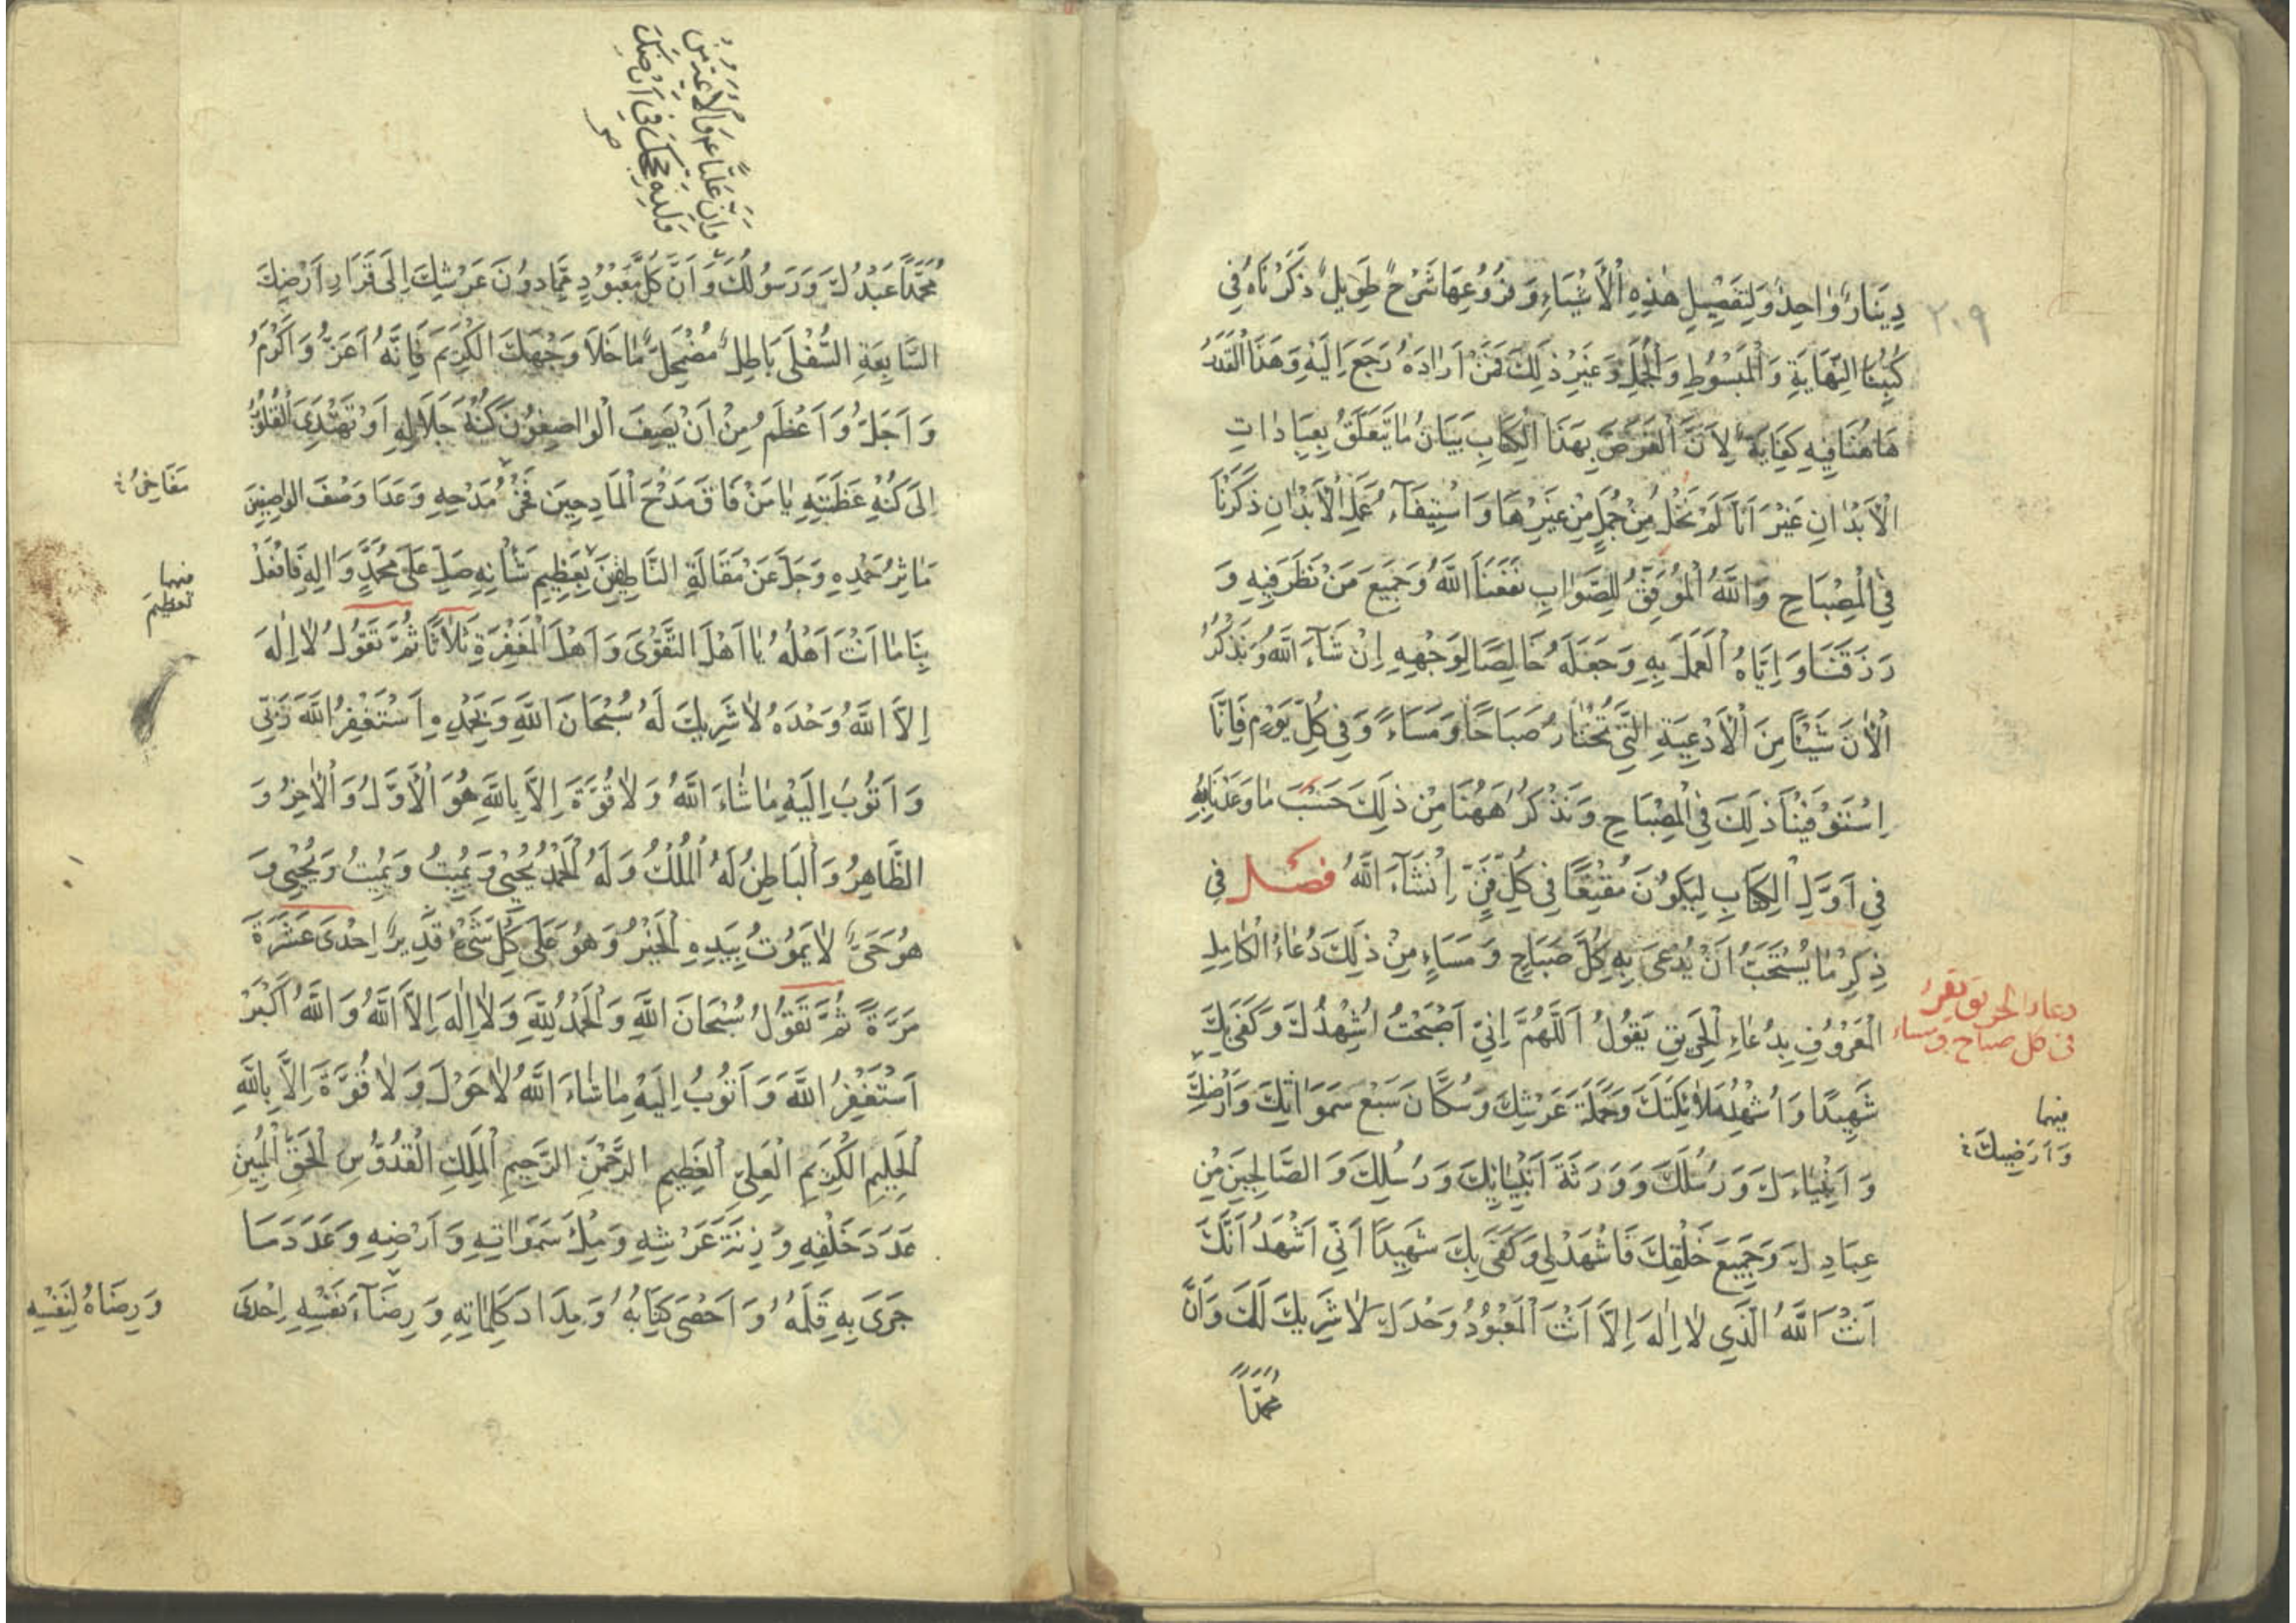 دِينَارٌ وَاحِدٌ وَلِتَفْصِيلِ هٰذِهِ الْأَشْيَاءِ وَفُرُوعِهَا شَرْحٌ طَوِيلٌ ذَكَرْنَاهُ فِي
٢٠٩
كُتُبِنَا النِّهَايَةِ وَالْمَبْسُوطِ وَالْجُمَلِ وَغَيْرِ ذٰلِكَ فَمَنْ أَرَادَهُ رَجَعَ إِلَيْهِ وَهَذَا الْقَدْرُ
هَاهُنَا فِيهِ كِفَايَةٌ لِأَنَّ الْغَرَضَ بِهَذَا الْكِتَابِ بَيَانُ مَا يَتَعَلَّقُ بِعِبَادَاتِ
الْأَبْدَانِ غَيْرَ أَنَّا لَمْ نُخْلِ مِنْ جُمَلٍ مِنْ غَيْرِهَا وَاسْتِيفَاءُ عَمَلِ الْأَبْدَانِ ذَكَرْنَا
فِي الْمِصْبَاحِ وَاللّٰهُ الْمُوَفِّقُ لِلصَّوَابِ نَفَعَنَا اللّٰهُ وَجَمِيعَ مَنْ نَظَرَ فِيهِ وَ
رَزَقَنَا وَإِيَّاهُ الْعَمَلَ بِهِ وَجَعَلَهُ خَالِصًا لِوَجْهِهِ إِنْ شَآءَ اللّٰهُ وَنَذْكُرُ
الْآنَ شَيْئًا مِنَ الْأَدْعِيَةِ الَّتِي تُخْتَارُ صَبَاحًا وَمَسَاءً وَفِي كُلِّ يَوْمٍ فَإِنَّا
اسْتَوْفَيْنَا ذٰلِكَ فِي الْمِصْبَاحِ وَنَذْكُرُ هٰهُنَا مِنْ ذٰلِكَ حَسَبَ مَا وَعَدْنَا بِهِ
فِي أَوَّلِ الْكِتَابِ لِيَكُونَ مُقْنِعًا فِي كُلِّ فَنٍّ إِنْشَآءَ اللّٰهُ فصل فِي
ذِكْرِ مَا يُسْتَحَبُّ أَنْ يُدْعَى بِهِ كُلَّ صَبَاحٍ وَمَسَاءٍ مِنْ ذٰلِكَ دُعَاءُ الْكَامِلِ
دعاء الحريق يقرء
في كل صباح ومساء
الْمَعْرُوفِ بِدُعَاءِ الْحَرِيقِ يَقُولُ اَللّٰهُمَّ إِنِّي أَصْبَحْتُ أُشْهِدُكَ وَكَفَى بِكَ
شَهِيدًا وَأُشْهِدُ مَلَائِكَتَكَ وَحَمَلَةَ عَرْشِكَ وَسُكَّانَ سَبْعِ سَمٰوَاتِكَ وَأَرْضِكَ
وَأَرَضِيكَ
وَأَنْبِيَاءَكَ وَرُسُلَكَ وَوَرَثَةَ أَنْبِيَائِكَ وَرُسُلِكَ وَالصَّالِحِينَ مِنْ
عِبَادِكَ وَجَمِيعَ خَلْقِكَ فَاشْهَدْ لِي وَكَفَى بِكَ شَهِيدًا أَنِّي أَشْهَدُ أَنَّكَ
أَنْتَ اللّٰهُ الَّذِي لَا إِلٰهَ إِلَّا أَنْتَ الْمَعْبُودُ وَحْدَكَ لَا شَرِيكَ لَكَ وَأَنَّ
مُحَمَّدًا
مُحَمَّدًا عَبْدُكَ وَرَسُولُكَ وَأَنَّ كُلَّ مَعْبُودٍ مِمَّا دُونَ عَرْشِكَ إِلَى قَرَارِ أَرْضِكَ
السَّابِعَةِ السُّفْلَى بَاطِلٌ مُضْمَحِلٌّ مَا خَلَا وَجْهَكَ الْكَرِيمَ فَإِنَّهُ أَعَزُّ وَأَكْرَمُ
وَأَجَلُّ وَأَعْظَمُ مِنْ أَنْ يَصِفَ الْوَاصِفُونَ كُنْهَ جَلَالِهِ أَوْ تَهْتَدِيَ الْقُلُوبُ
إِلَى كُنْهِ عَظَمَتِهِ يَا مَنْ فَاقَ مَدْحَ الْمَادِحِينَ فَخْرُ مَدْحِهِ وَعَدَا وَصْفَ الْوَاصِفِينَ
مَفَاخِرُ
مَآثِرُ حَمْدِهِ وَجَلَّ عَنْ مَقَالَةِ النَّاطِقِينَ بِعَظِيمِ شَأْنِهِ صَلِّ عَلَى مُحَمَّدٍ وَآلِهِ فَافْعَلْ
تعظيم
بِنَا مَا أَنْتَ أَهْلُهُ يَا أَهْلَ التَّقْوَى وَأَهْلَ الْمَغْفِرَةِ ثَلَاثًا ثُمَّ تَقُولُ لَا إِلٰهَ
إِلَّا اللّٰهُ وَحْدَهُ لَا شَرِيكَ لَهُ سُبْحَانَ اللّٰهِ وَبِحَمْدِهِ أَسْتَغْفِرُ اللّٰهَ رَبِّي
وَأَتُوبُ إِلَيْهِ مَا شَاءَ اللّٰهُ وَلَا قُوَّةَ إِلَّا بِاللّٰهِ هُوَ الْأَوَّلُ وَالْآخِرُ وَ
الظَّاهِرُ وَالْبَاطِنُ لَهُ الْمُلْكُ وَلَهُ الْحَمْدُ يُحْيِي وَيُمِيتُ وَيُمِيتُ وَيُحْيِي وَ
هُوَ حَيٌّ لَا يَمُوتُ بِيَدِهِ الْخَيْرُ وَهُوَ عَلَى كُلِّ شَيْءٍ قَدِيرٌ إِحْدَى عَشْرَةَ
مَرَّةً ثُمَّ تَقُولُ سُبْحَانَ اللّٰهِ وَالْحَمْدُ لِلّٰهِ وَلَا إِلٰهَ إِلَّا اللّٰهُ وَاللّٰهُ أَكْبَرُ
أَسْتَغْفِرُ اللّٰهَ وَأَتُوبُ إِلَيْهِ مَا شَاءَ اللّٰهُ لَا حَوْلَ وَلَا قُوَّةَ إِلَّا بِاللّٰهِ
الْحَلِيمِ الْكَرِيمِ الْعَلِيِّ الْعَظِيمِ الرَّحْمٰنِ الرَّحِيمِ الْمَلِكِ الْقُدُّوسِ الْحَقِّ الْمُبِينِ
عَدَدَ خَلْقِهِ وَزِنَةَ عَرْشِهِ وَمِلْءَ سَمٰوَاتِهِ وَأَرْضِهِ وَعَدَدَ مَا
جَرَى بِهِ قَلَمُهُ وَأَحْصَى كِتَابُهُ وَمِدَادَ كَلِمَاتِهِ وَرِضَاءَ نَفْسِهِ إِحْدَى
وَرِضَاهُ لِنَفْسِهِ